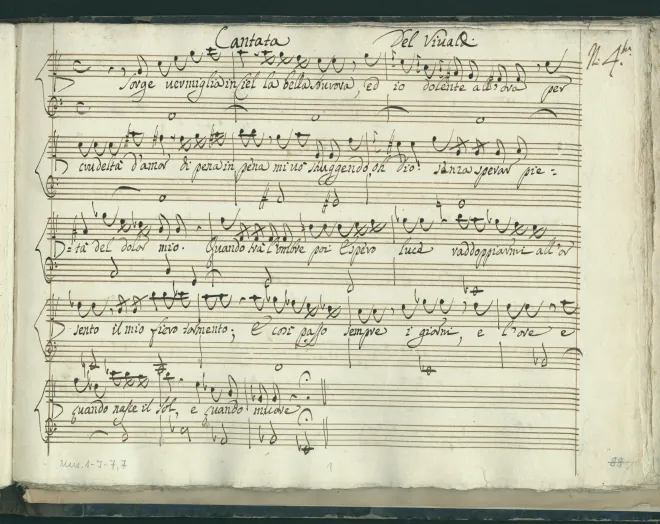 Cantata Del Viualdi
N: 4.
Sorge uermiglia in Ciel la bella Aurora, ed io dolente all'ora per
crudeltà d'amor di pena in pena mi uò struggendo, oh Dio! senza sperar pie=
=tà del dolor mio. Quando trà l'ombre poi Espero luce raddoppiarmi all'or
sento il mio fiero tormento; E così passo sempre i giorni, e l'ore e
quando nasce il Sol, e quando muore
1
88